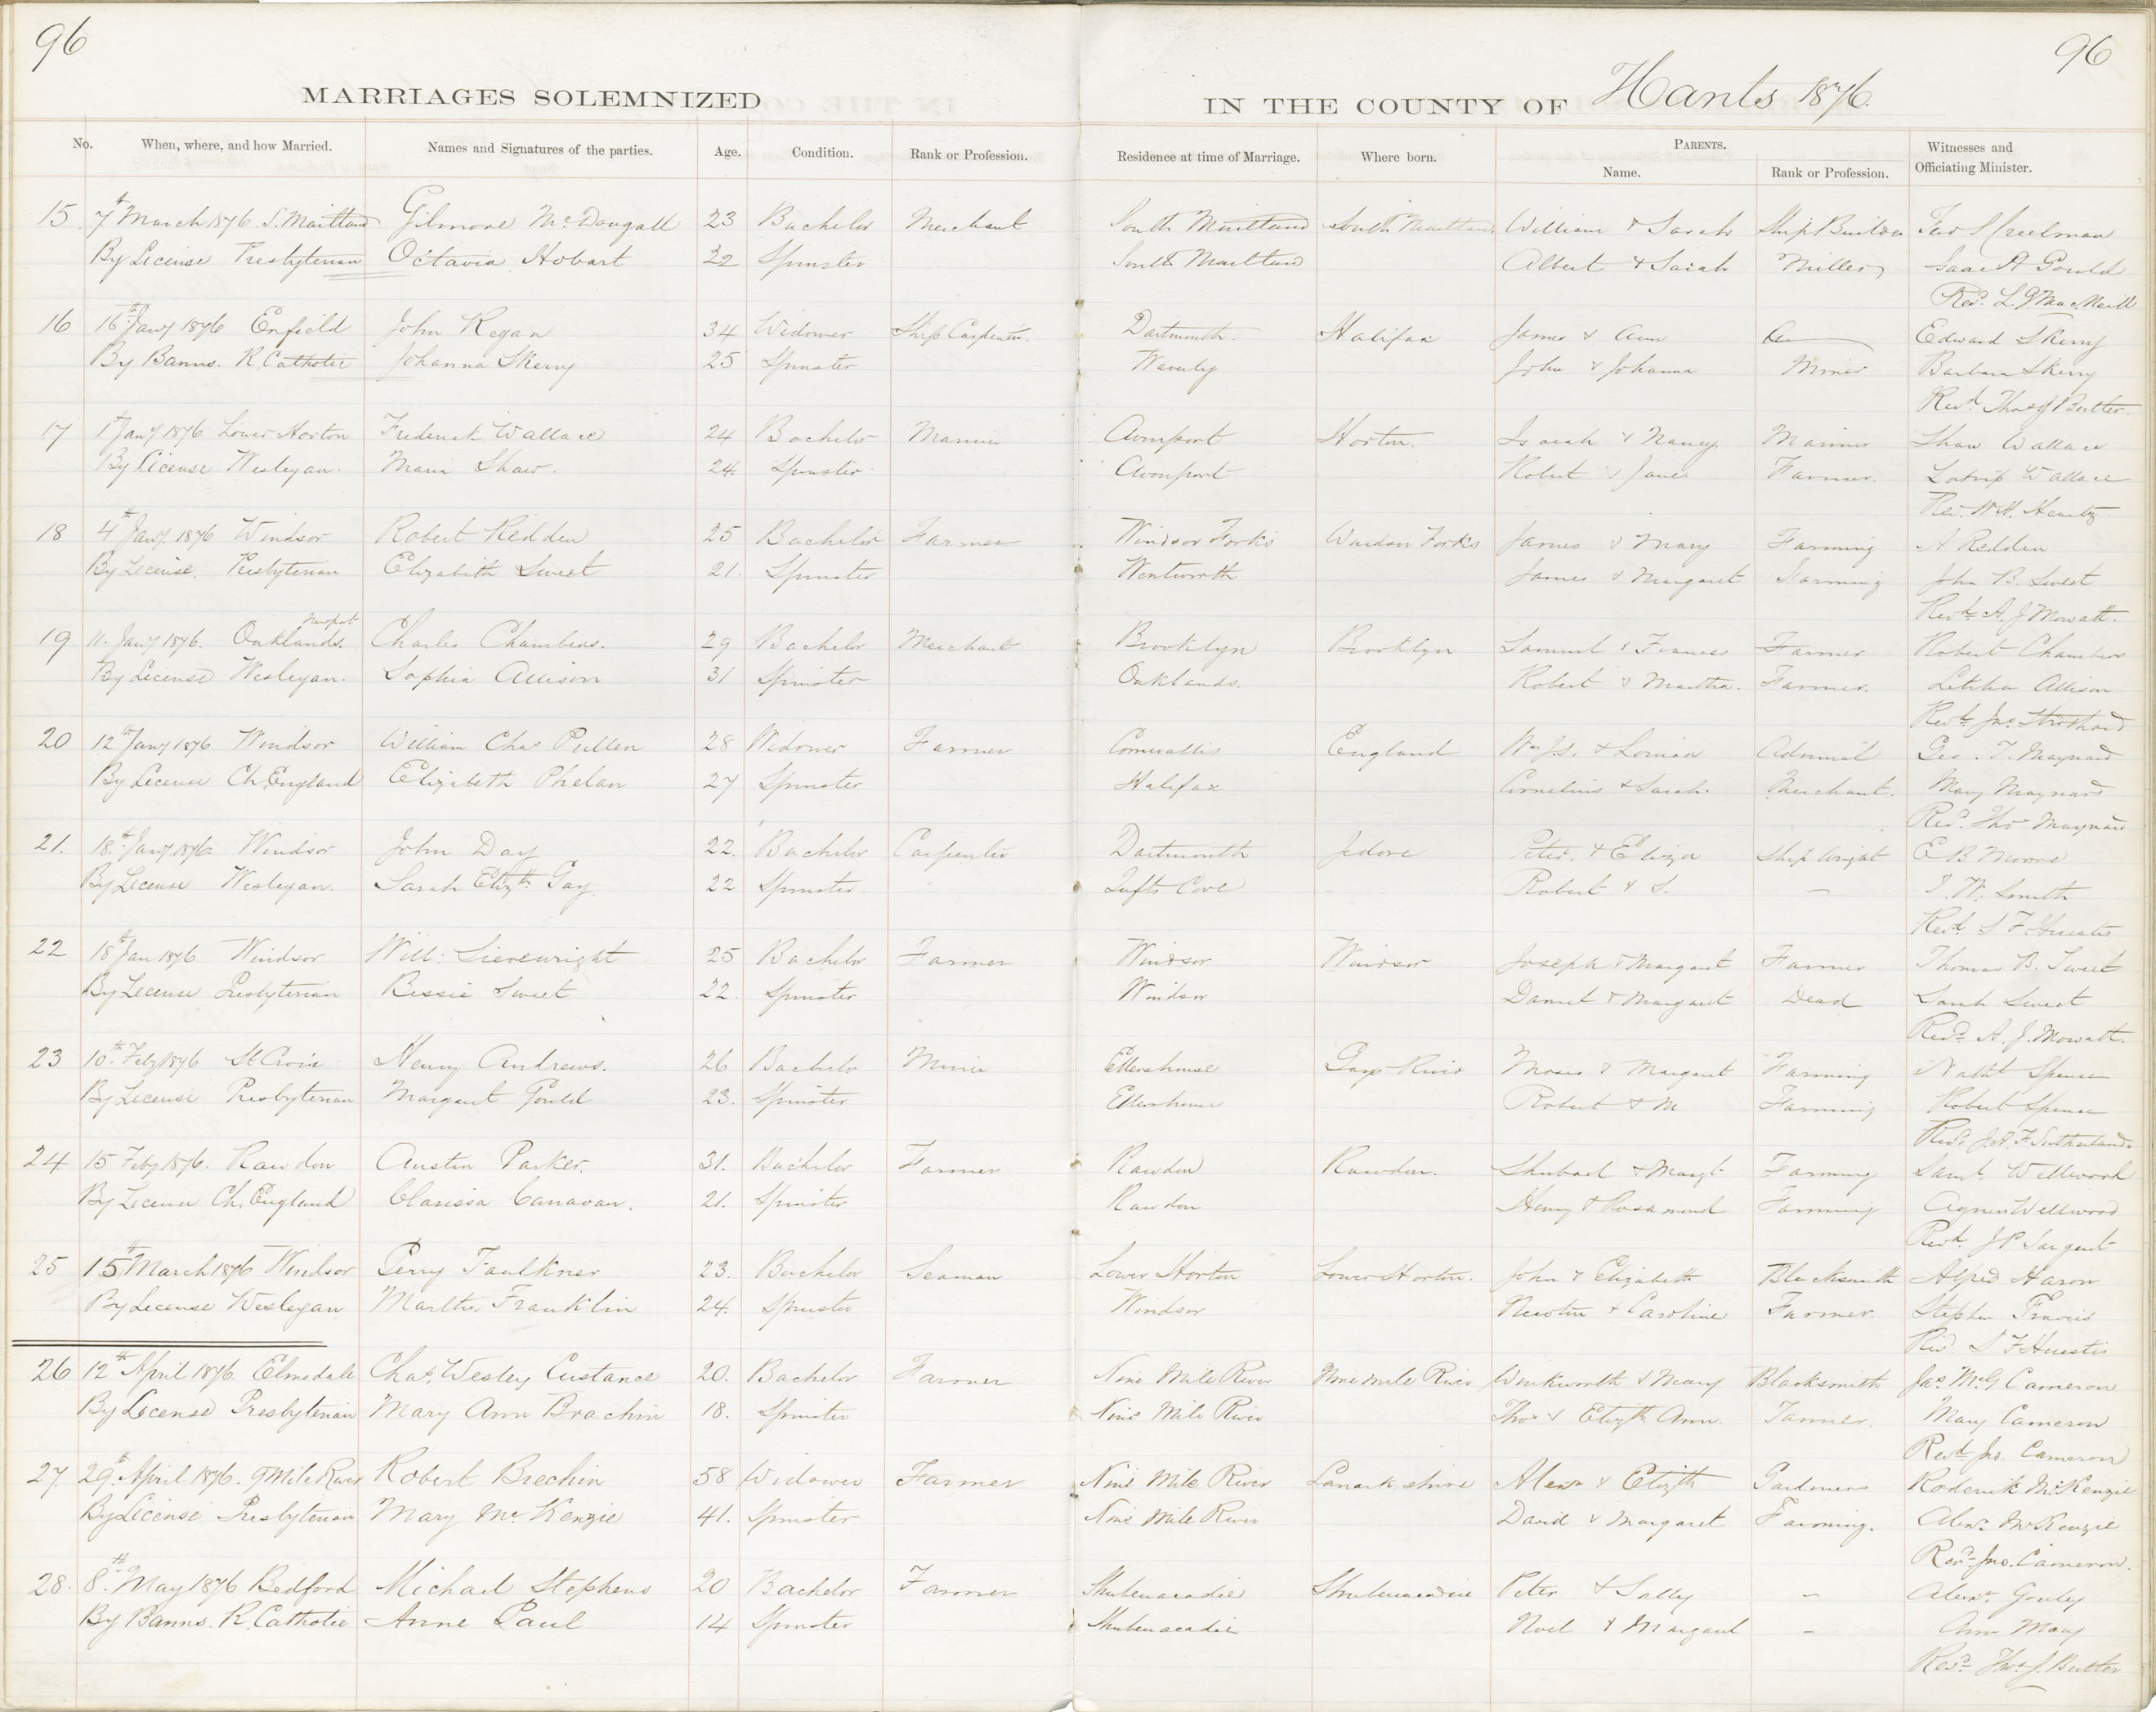 96
96
MARRIAGES SOLEMNIZED
IN THE COUNTY OF Hants 1876.
No. When, where, and how Married. Names and Signatures of the parties. Age. Condition. Rank or Profession. Residence at time of Marriage. Where born. PARENTS. Witnesses and
Name. Rank or Profession. Officiating Minister.
15 7th March 1876 S. Maitland Gilmore McDougall 23 Bachelor Merchant South Maitland South Maitland William & Sarah Ship Builder Creelman
By License Presbyterian Octavia Hobart 22 Spinster South Maitland Albert & Sarah Miller Isaac A Gould
Revd. L. G. MacNeill
16 16th Jany 1876 Enfield John Regan 34 Widower Ship Carpenter. Dartmouth. Halifax James & Ann Edward Skerry
By Banns. R. Catholic Johanna Skerry 25 Spinster Waverly John & Johanna Miner Barbara Skerry
Revd. Thos J Butler.
17 1st Jany 1876 Lower Horton Frederick Wallace 24 Bachelor Mariner Avonport Horton. Isaiah & Nancy Mariner Shaw Wallace
By License Wesleyan. Maria Shaw. 24. Spinster. Avonport Robert & Janes Farmer. Wallace
Rev. W. H. Heartz
18 4th Jany. 1876 Windsor Robert Redden 25 Bachelor Farmer Windsor Forks Windsor Forks James & Mary Farming A Redden
By License. Presbyterian Elizabeth Sweet 21. Spinster Wentworth James & Margaret Farming John B. Sweet
Revd. A. J Mowatt.
19 11. Jany 1876. Oaklands. Newport Charles Chambers. 29 Bachelor Merchant Brooklyn Brooklyn Samuel & Frances Farmer Robert Chambers
By License Wesleyan. Sophia Allison 31 Spinster Oaklands. Robert & Martha. Farmer. Letitia Allison
Revd. Jno. Strothard
20 12th Jany 1876 Windsor William Chas Pullen 28 Widower Farmer Cornwallis England Wm J.S. & Louisa Admiral Geo. T. Maynard
By License Ch. England Elizabeth Phelan 27 Spinster Halifax Cornelius & Sarah. Merchant. Mary Maynard
Revd. Thos Maynard
21. 18th Jany 1876 Windsor John Day 22. Bachelor Carpenter Dartmouth Jedore Peter. & Eliza Ship Wright E B Moore
By License Wesleyan. Sarah Elizth. Gay. 22 Spinster. Tufts Cove - Robert & S. - J. W. Smith
Revd. S F Huestis
22 18th Jan 1876 Windsor Will: Sievewright 25 Bachelor Farmer Windsor Windsor Joseph & Margaret Farmer Thomas B. Sweet
By License Presbyterian Bessie Sweet 22. Spinster Windsor Daniel & Margaret Dead Sarah Sweet
Revd. A. J. Mowatt.
23 10th Feby 1876 St Croix Henry Andrews. 26 Bachelor Miner Ellershouse Gays River Moses & Margaret Farming Nathl Spence
By License Presbyterian Margaret Gould 23. Spinster Ellershouse Robert & M Farming Robert Spence
Revd. Jas. F. Sutherland.
24 15 Feby 1876. Rawdon Austin Parker. 31. Bachelor Farmer Rawdon Rawdon. Shubael & Margt Farming Saml. Wellwood
By License Ch. England Clarissa Canavan. 21. Spinster Rawdon Henry & Rosamond Farming Agnes Wellwood
Revd. J P Sargent
25 15th March 1876 Windsor Perry Faulkner 23. Bachelor Seaman Lower Horton Lower Horton. John & Elizabeth Blacksmith Alfred Haron
By License Wesleyan Martha Franklin 24. Spinster Windsor Newton & Caroline Farmer. Stephen Francis
Revd. S F Huestis
26 12th April 1876. Elmsdale Chas. Wesley Custance 20. Bachelor Farmer Nine Mile River Nine mile River Winkworth & Mary Blacksmith Jas. McG Cameron
By License Presbyterian Mary Ann Brachin 18. Spinster Nine Mile River Thos & Elizth Ann. Tanner. Mary Cameron
Revd. Jno. Cameron
27. 29th April 1876. 9 Mile River Robert Brechin 58 Widower Farmer Nine Mile River Lanarkshire Alexr & Elizth Gardeners Roderick McKenzie
By License Presbyterian Mary McKenzie 41. Spinster Nine Mile River David & Margaret Farming. Alexr. McKenzie
Revd. Jno. Cameron.
28. 8th May 1876 Bedford Michael Stephens 20 Bachelor Farmer Shubenacadie Shubenacadie Peter & Sally - Alexr. Gouley
By Banns. R. Catholic Anne Paul 14 Spinster Shubenacadie Noel & Margaret - Ann Mary
Revd. Thos. J. Butler